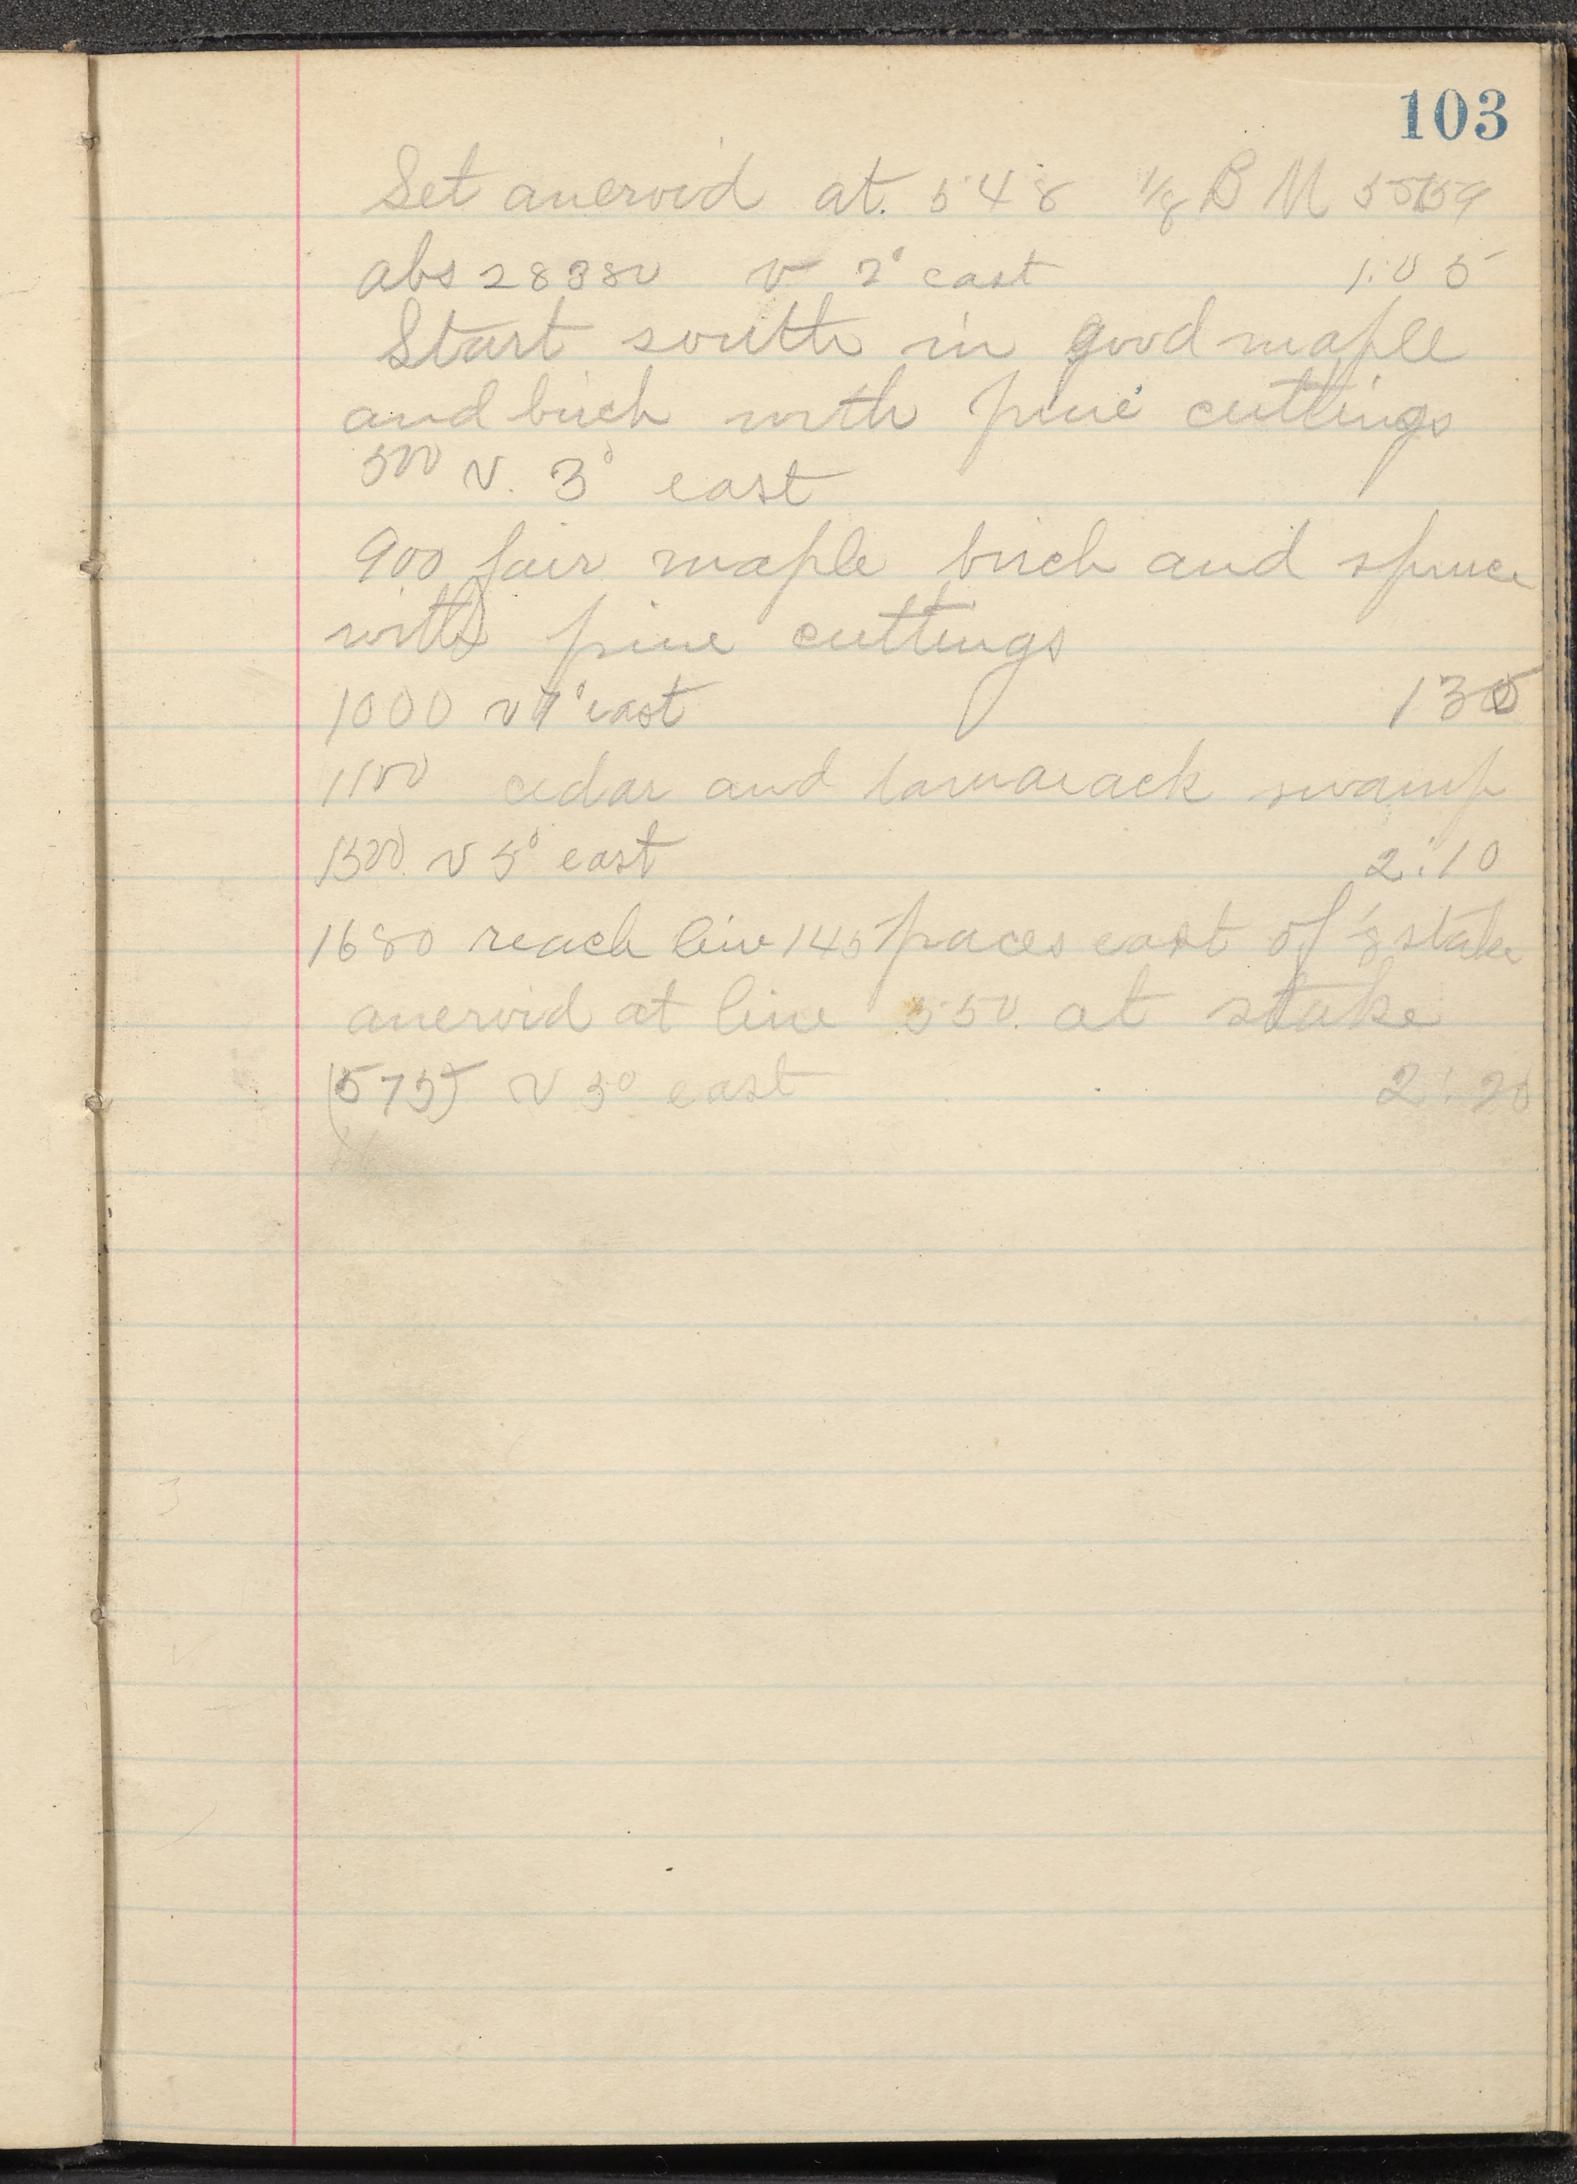 103
Set aneroid at. 548 1/8 B M
abs 28380 v 2° east 1:05
Start south in good maple
and birch with pine cuttings
500 v. 3° east
900 fair maple birch and spruce
with pine cuttings
1000 v 7° east 135
1100 cedar and tamarack swamp
1500 v 5° east 2:10
1680 reach line 145 paces east of 1/8 stake
aneroid at line 550. at stake
(575) v 5° east 2:20